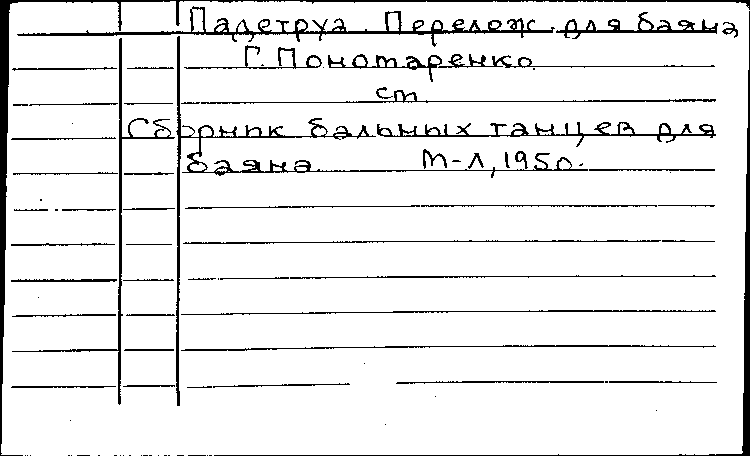 Падетруа. Перелож. для баяна
Г. Пономаренко
см.
Сборник бальных танцев для
баяна. М-Л, 1950.